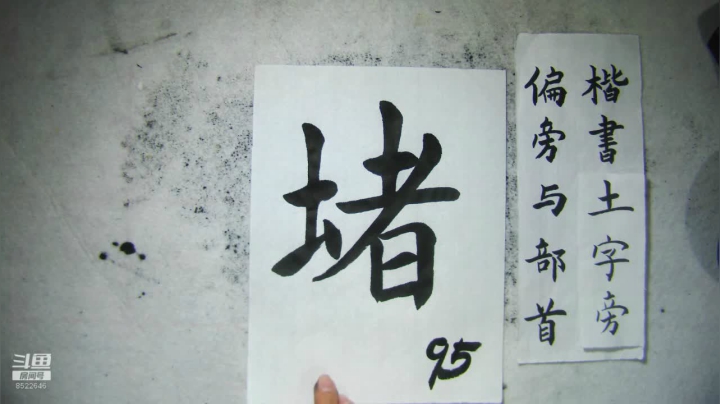 楷書土字旁
偏旁与部首
堵
95
斗鱼
房间号
8522646